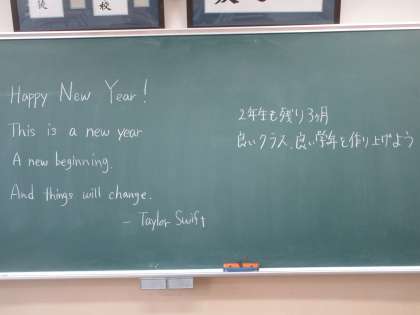 Happy New Year!
This is a new year
A new beginning.
And things will change.
- Taylor Swift
2年生も残り3ヶ月
良いクラス、良い学年を作り上げよう